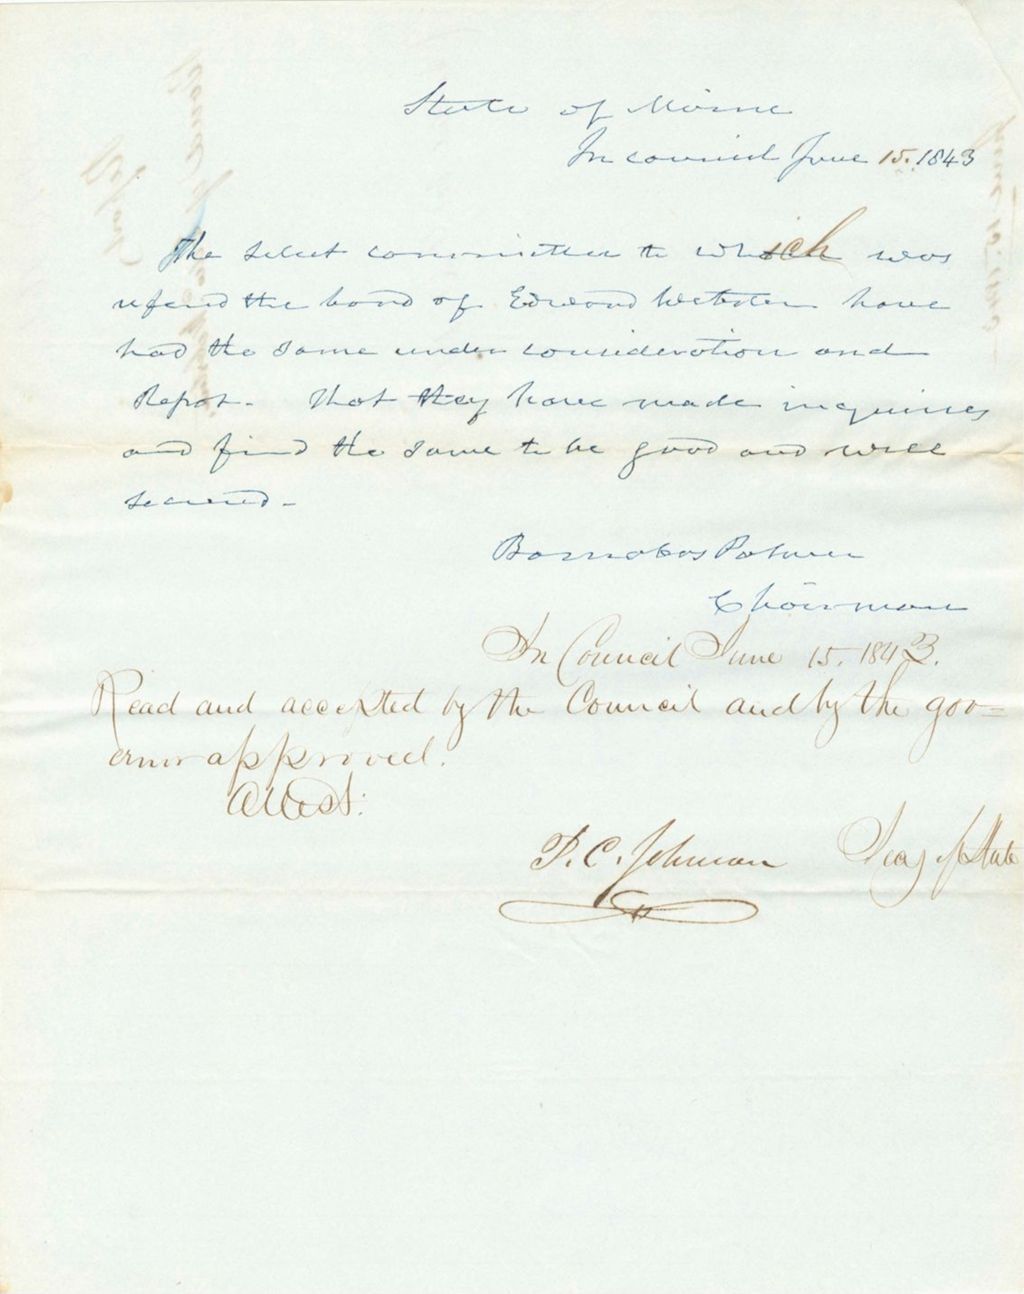 State of Maine
In council June 15. 1843
The select committee to which was
referred the bond of Edward Webster have
had the same under consideration and
Report. That they have made inquiries
and find the same to be good and well
secured.
Barnabas Palmer
Chairman
In Council June 15. 1843.
Read and accepted by the Council and by the gov=
ernor approved.
Attest:
P. C. Johnson Secy of State